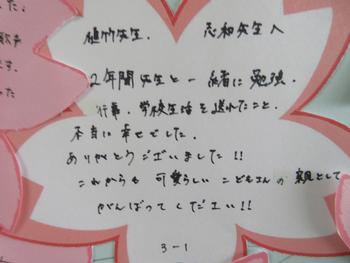 植竹先生. 志和先生へ
2年間先生と一緒に勉強.
行事. 学校生活を送れたこと.
本当に幸せでした.
ありがとうございました!!
これからも可愛らしいこどもさんの親として
がんばってください!!
3-1